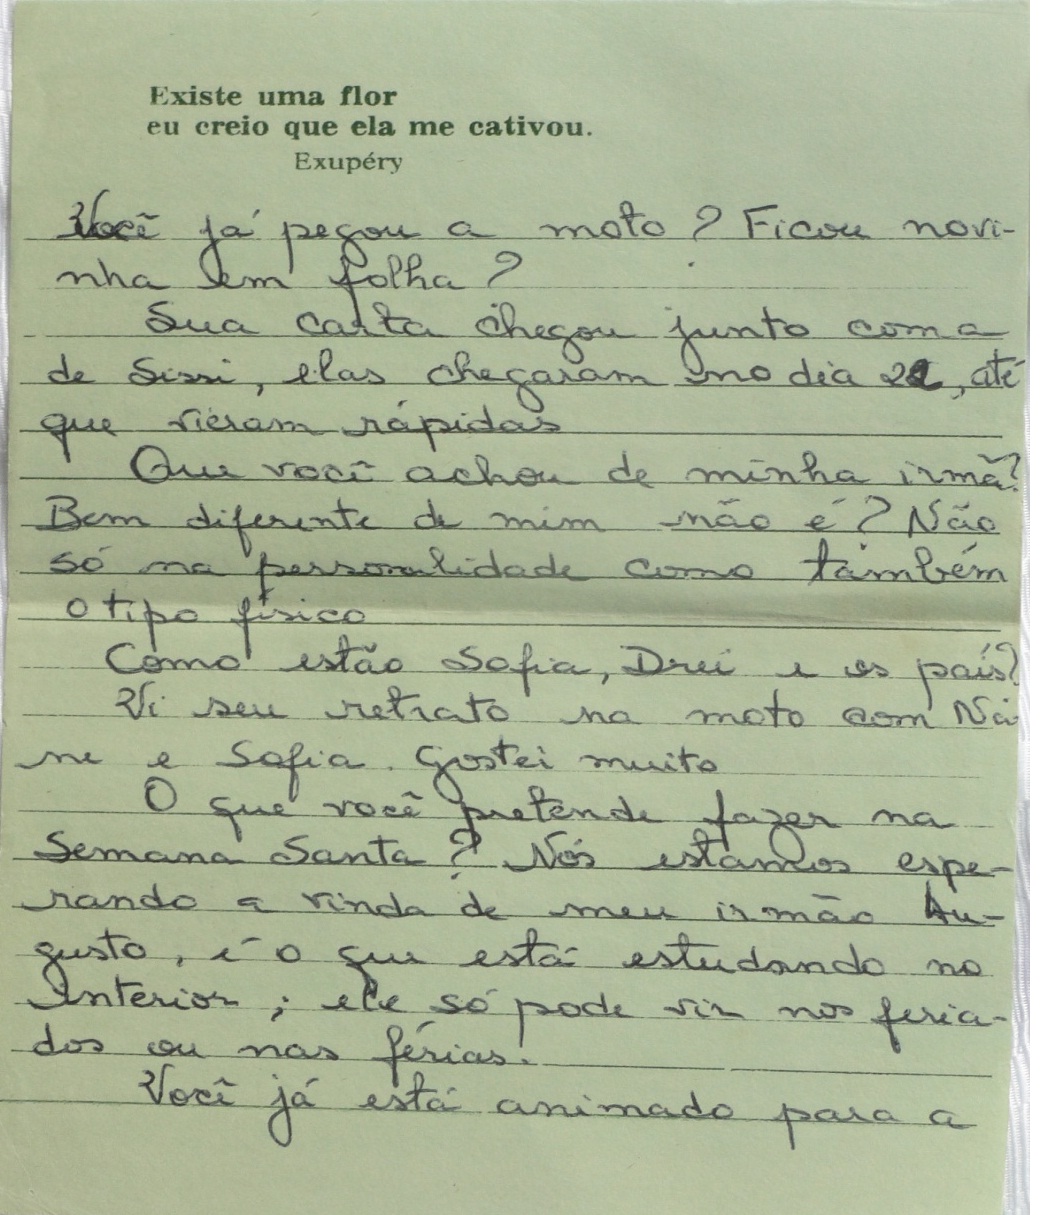 Existe uma flor
eu creio que ela me cativou.
Exupéry
Você já pegou a moto? Ficou novi-
nha em folha?
Sua carta chegou junto com a
de Sissi, elas chegaram no dia 22, até
que vieram rápidas
Que você achou de minha irmã?
Bem diferente de mim não é? Não
só na personalidade como também
o tipo físico
Como estão Sofia, Drei e os país?
Vi seu retrato na moto com Na
ne e Sofia. Gostei muito
O que você pretende fazer na
Semana Santa? Nós estamos espe-
rando a vinda de meu irmão Au-
gusto, é o que está estudando no
Interior; ele só pode vir nos feria-
dos ou nas férias.
Você já está animado para a